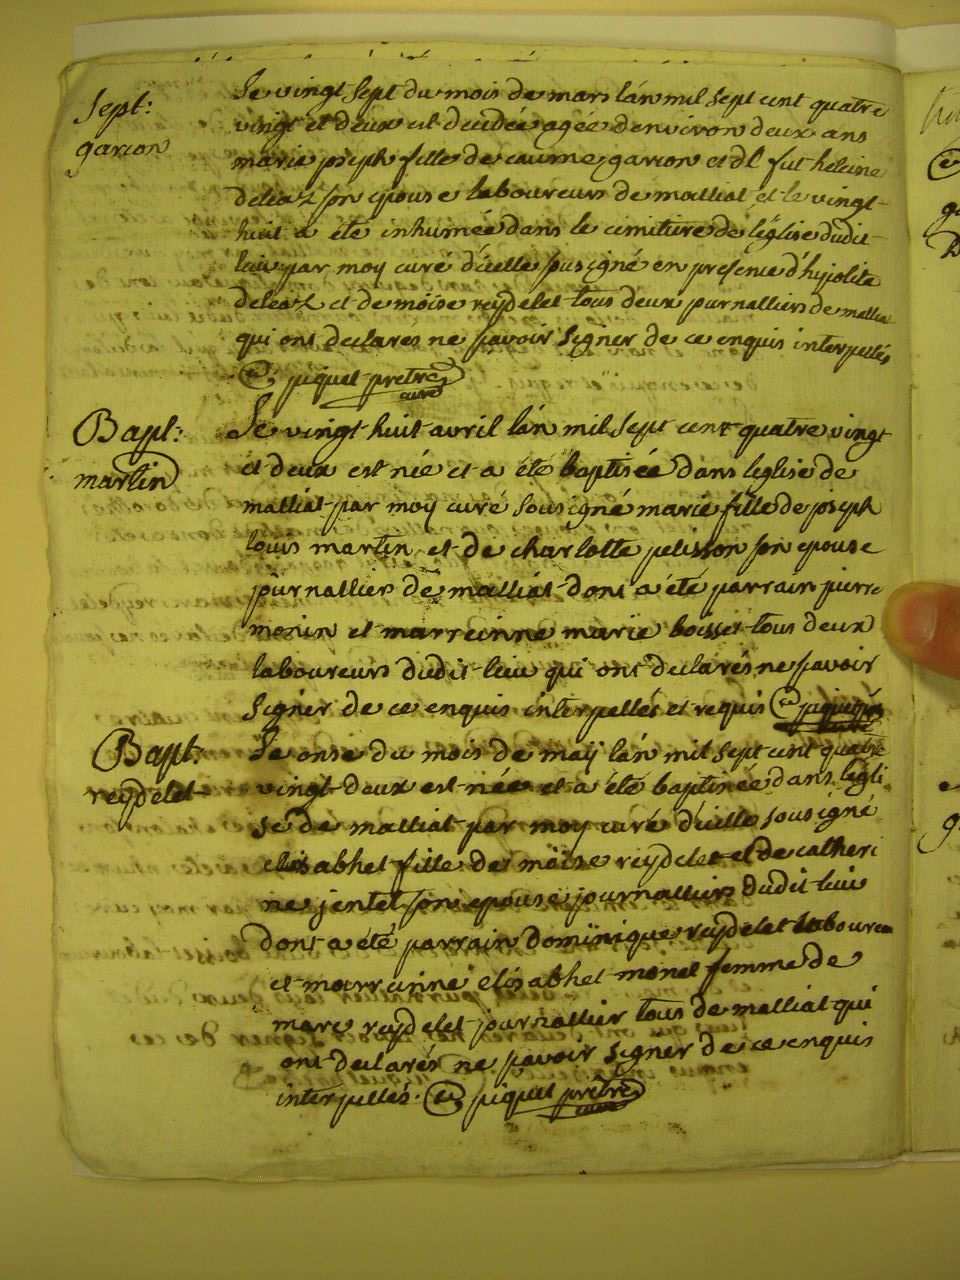 Sept:
garcon
Le vingt sept du mois de mars lán mil sept cent quatre
vingt et deux est decedée agée denviron deux ans
marie joseph fille de caume garcon et d
deleaz son epouse laboureurs de malliat et le vingt
huit a été inhumée dans le cimitiere de léglise dudit
lieu par moy curé d'icelle sousigné en presence d'hypolite
deleaz et de moise reydelet tous deux journalliers de mallia
qui ont declarés ne savoir signer de ce enquis interpellés
piquet pretre
curé
Bapt:
martin
Le vingt huit avril lán mil sept cent quatre vingt
et deux est née et a été baptisée dans leglise de
malliat par moy curé sousigné marie fille de joseph
louis martin et de charlotte pelisson son epouse
journalliers de malliat dont a été parrain pierre
monin et marreinne marie boisset tous deux
laboureurs dudit lieu qui ont declarés ne savoir
signer de ce enquis interpellés et requis
Bapt:
reydelet
Le onse du mois de may lán mil sept cent quatre
vingt deux est née et a été baptisée dans légli
se de malliat par moy curé d'icelle sousigné
elisabhet fille de moise reydelet et de catheri
ne jentet son epouse journalliers dudit lieu
dont a été parrain dominique reydelet laboureur
et marreinne elisabhet monet femme de
marc reydelet journallier tous de malliat qui
ont declarés ne savoir signer de ce enquis
interpellés. piquet prêtre
curé